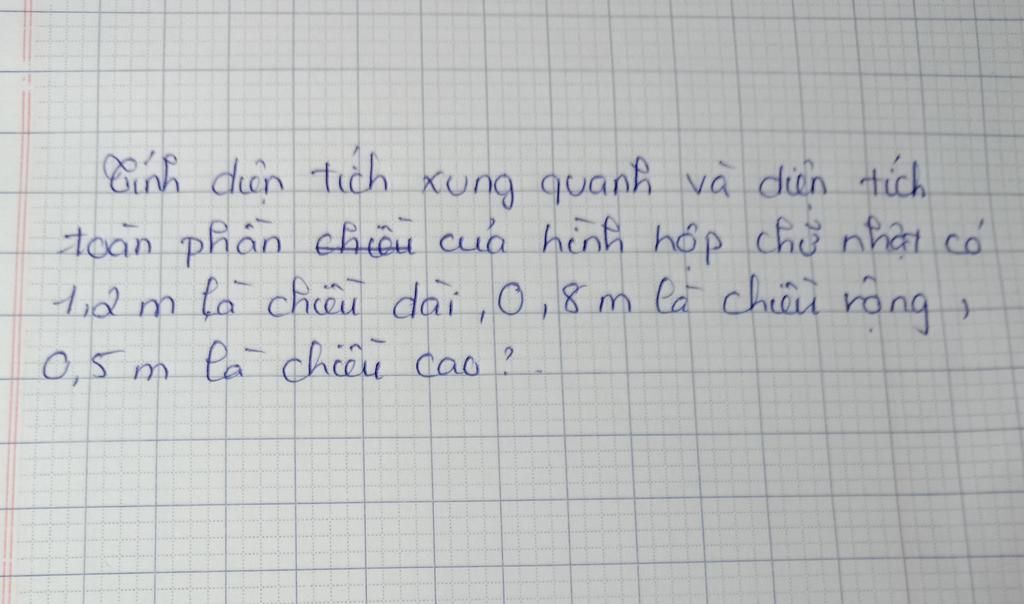 Tính diện tích xung quanh và diện tích
toàn phần chiều của hình hộp chữ nhật có
1,2 m là chiều dài, 0,8 m là chiều rộng,
0,5 m là chiều cao?